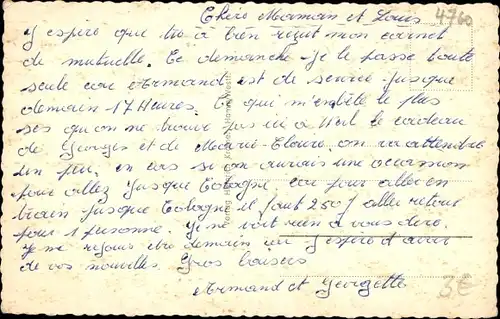 Chère Maman et Louis
4760
J'espère que tu à bien reçut mon carnet
de mutuelle. Ce demanche je le passe toute
seule car Armand est de service jusque
demain 17 Heures. Ce qui m'embête le plus
ses qu'on ne trouve pas ici à Werl le cadeau
de Georges et de Marie-Claire. on va attendre
un peu, en cas si on aurais une occasion
pour allez jusque Cologne. car pour aller en
train jusque Cologne il faut 250f aller retour
pour 1 personne. Je ne voit rien à vous dire.
Je me rejouis etre demain J'espère d'avoir
de vos nouvelles. Gros baisers
Armand et Georgette
3€
Verlag